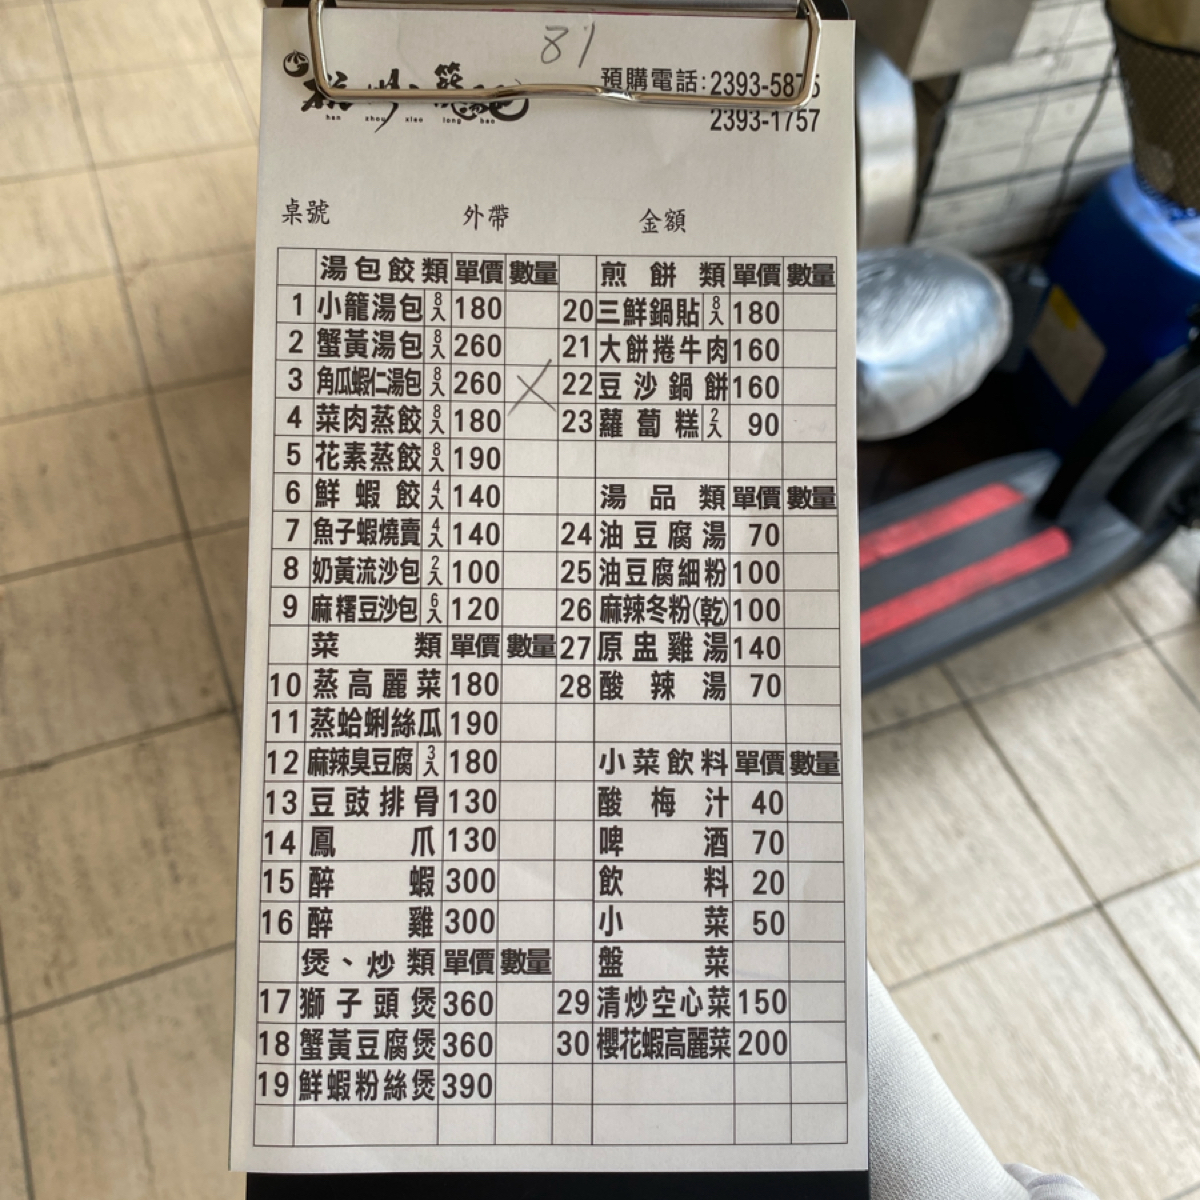 81
杭州小籠湯包
han zhou xiao long bao
預購電話:2393-5875
2393-1757
桌號 外帶 金額
湯包餃類 單價 數量 煎餅類 單價 數量
1 小籠湯包 8入 180 20 三鮮鍋貼 8入 180
2 蟹黃湯包 8入 260 21 大餅捲牛肉 160
3 角瓜蝦仁湯包 8入 260 22 豆沙鍋餅 160
4 菜肉蒸餃 8入 180 23 蘿蔔糕 2入 90
5 花素蒸餃 8入 190
6 鮮蝦餃 4入 140 湯品類 單價 數量
7 魚子蝦燒賣 4入 140 24 油豆腐湯 70
8 奶黃流沙包 2入 100 25 油豆腐細粉 100
9 麻糬豆沙包 6入 120 26 麻辣冬粉(乾) 100
菜類 單價 數量 27 原盅雞湯 140
10 蒸高麗菜 180 28 酸辣湯 70
11 蒸蛤蜊絲瓜 190
12 麻辣臭豆腐 3入 180 小菜飲料 單價 數量
13 豆豉排骨 130 酸梅汁 40
14 鳳爪 130 啤酒 70
15 醉蝦 300 飲料 20
16 醉雞 300 小菜 50
煲、炒類 單價 數量 盤菜
17 獅子頭煲 360 29 清炒空心菜 150
18 蟹黃豆腐煲 360 30 櫻花蝦高麗菜 200
19 鮮蝦粉絲煲 390